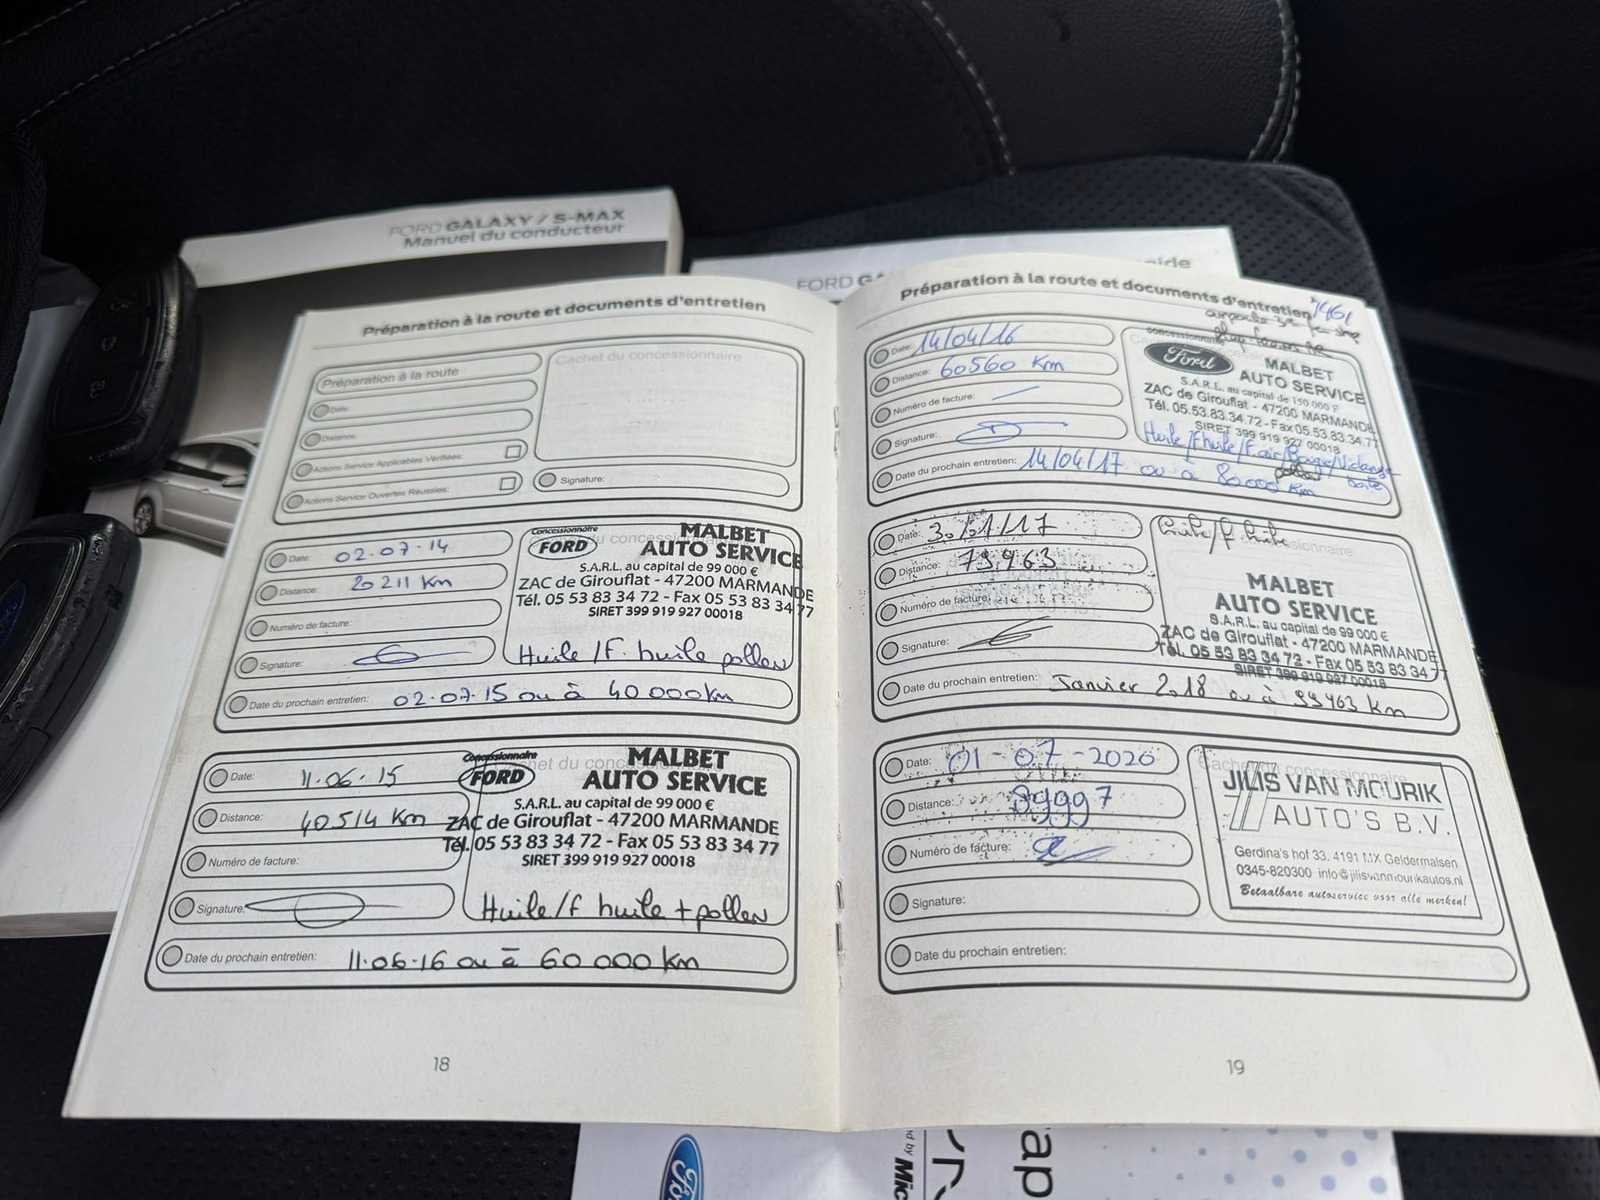 FORD GALAXY / S-MAX
Manuel du conducteur
Préparation à la route et documents d'entretien
Préparation à la route
Date:
Distance:
Actions Service Applicables Vérifiées:
Actions Service Ouvertes Réussies:
Cachet du concessionnaire
Signature:
Date: 02.07.14
Distance: 20211 Km
Numéro de facture:
Signature:
Concessionnaire
FORD
MALBET
AUTO SERVICE
S.A.R.L. au capital de 99 000 €
ZAC de Girouflat - 47200 MARMANDE
Tél. 05 53 83 34 72 - Fax 05 53 83 34 77
SIRET 399 919 927 00018
Huile /F. huile pollen
Date du prochain entretien: 02.07.15 ou à 40000km
Date: 11.06.15
Distance: 40514 Km
Numéro de facture:
Signature:
Concessionnaire
FORD
MALBET
AUTO SERVICE
S.A.R.L. au capital de 99 000 €
ZAC de Girouflat - 47200 MARMANDE
Tél. 05 53 83 34 72 - Fax 05 53 83 34 77
SIRET 399 919 927 00018
Huile/f huile + pollen
Date du prochain entretien: 11.06.16 ou à 60 000 km
18
FORD
Préparation à la route et documents d'entretien
Date: 14/04/16
Distance: 60560 Km
Numéro de facture:
Signature:
Concessionnaire
Ford
MALBET
AUTO SERVICE
S.A.R.L. au capital de 150.000 F
ZAC de Girouflat - 47200 MARMANDE
Tél. 05.53.83.34.72 - Fax 05.53.83.34.77
SIRET 399 919 927 00018
Huile/Fhuile/Fair/Bougie/Vidange
pollen
Date du prochain entretien: 14/04/17 ou à 80.000 Km
Date: 30/01/17
Distance: 79463
Numéro de facture:
Signature:
MALBET
AUTO SERVICE
S.A.R.L. au capital de 99 000 €
ZAC de Girouflat - 47200 MARMANDE
Tél. 05 53 83 34 72 - Fax 05 53 83 34 77
SIRET 399 919 927 00018
Date du prochain entretien: Janvier 2018 ou à 99463 Km
Date: 01-07-2020
Distance: 89997
Numéro de facture:
Signature:
Cachet du concessionnaire
JILIS VAN MOURIK
AUTO'S B.V.
Gerdina's hof 33, 4191 MX Geldermalsen
0345-820300 info@jilisvanmourikautos.nl
Betaalbare autoservice voor alle merken!
Date du prochain entretien:
19